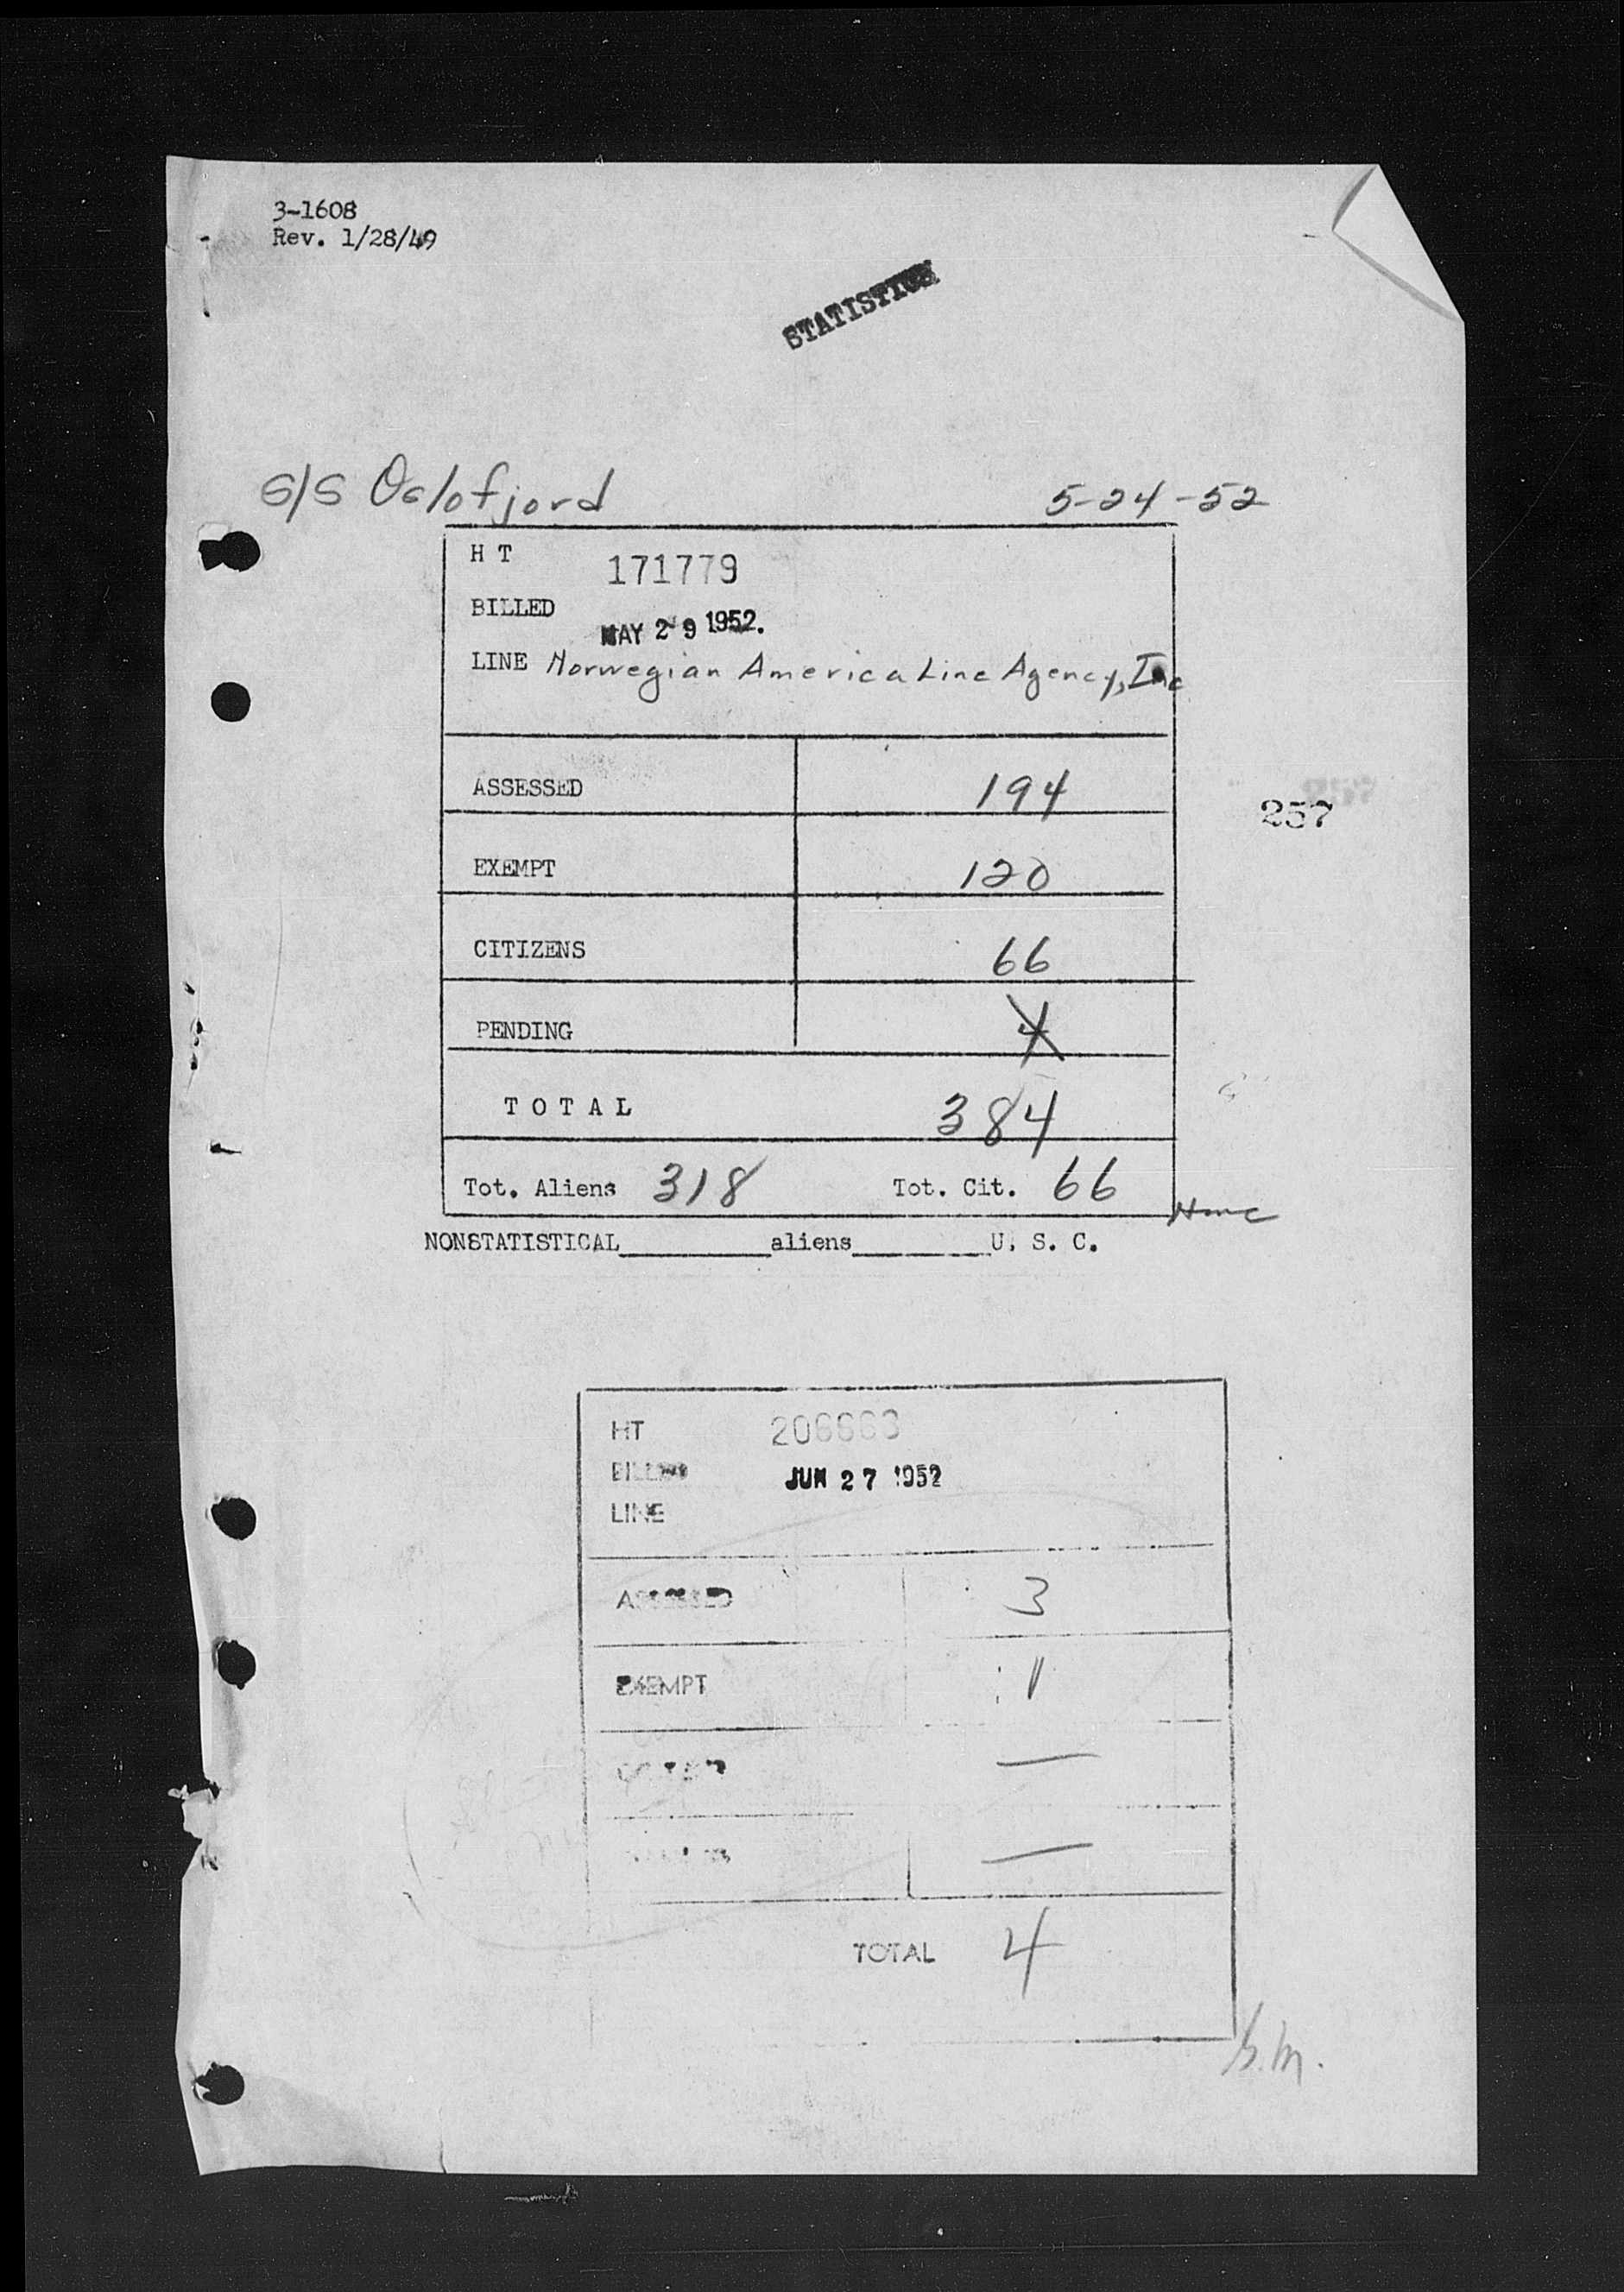 3-1608
Rev. 1/28/49
STATISTICS
S/S Oslofjord 5-24-52
H T 171779
BILLED
MAY 29 1952.
LINE Norwegian America Line Agency, Inc
ASSESSED 194
257
EXEMPT 120
CITIZENS 66
PENDING 4
TOTAL 384
Tot. Aliens 318 Tot. Cit. 66
NONSTATISTICAL__________aliens_________U. S. C.
HT
BILLED JUN 27 1952
LINE
ASSESSED 3
EXEMPT 1
—
—
TOTAL 4